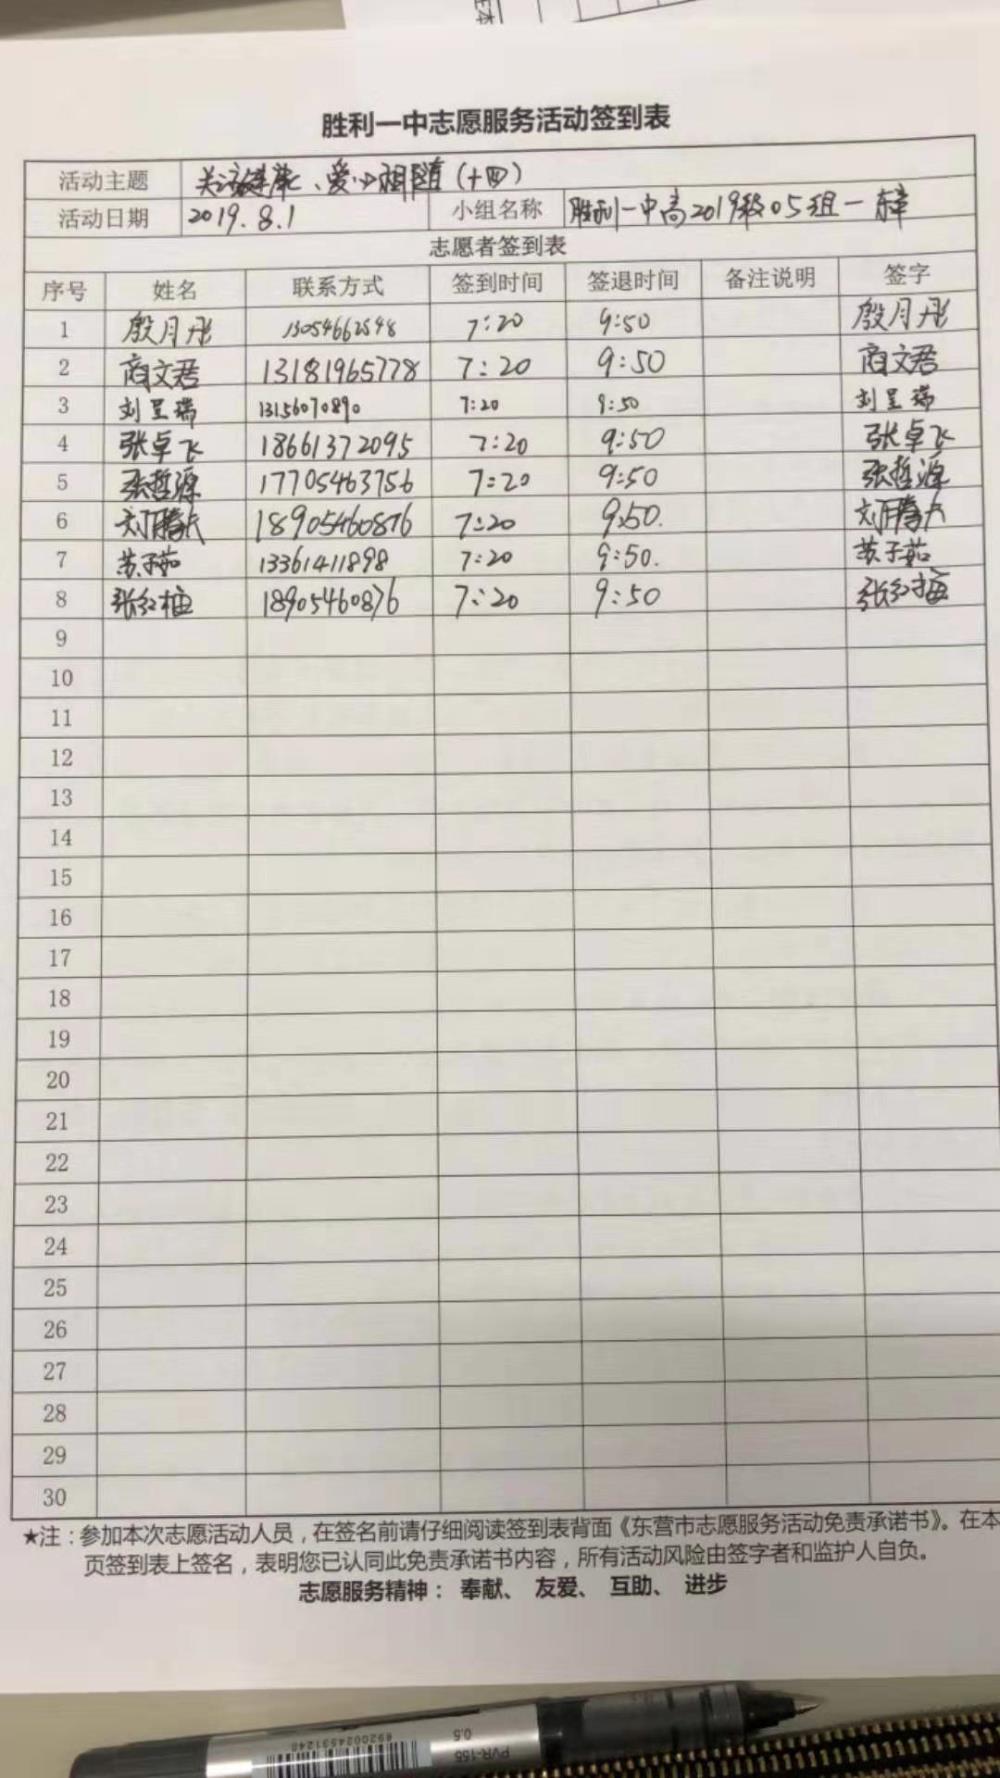 胜利一中志愿服务活动签到表
活动主题 关注健康、爱心相随（十四）
活动日期 2019.8.1 小组名称 胜利一中高2019级05组一
志愿者签到表
序号 姓名 联系方式 签到时间 签退时间 备注说明 签字
1 殷月彤 13054662598 7:20 9:50 殷月彤
2 商文君 13181965778 7:20 9:50 商文君
3 刘呈瑞 13156070890 7:20 9:50 刘呈瑞
4 张卓飞 18661372095 7:20 9:50 张卓飞
5 张哲源 17705463756 7:20 9:50 张哲源
6 18905460876 7:20 9:50.
7 苏子茹 13361411898 7:20 9:50. 苏子茹
8 张红梅 18905460876 7:20 9:50 张红梅
9
10
11
12
13
14
15
16
17
18
19
20
21
22
23
24
25
26
27
28
29
30
★注：参加本次志愿活动人员，在签名前请仔细阅读签到表背面《东营市志愿服务活动免责承诺书》。在本
页签到表上签名，表明您已认同此免责承诺书内容，所有活动风险由签字者和监护人自负。
志愿服务精神： 奉献、 友爱、 互助、 进步
PVR-155 0.5
6920024531240